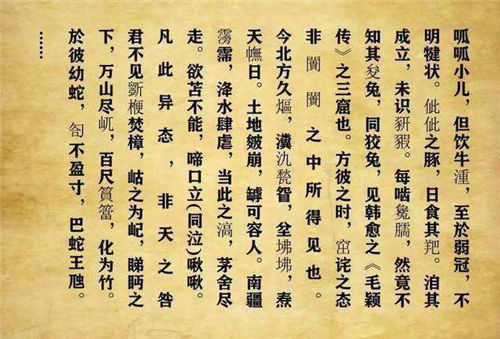 呱呱小儿，但饮牛湩，至於弱冠，不
明犍状。佌佌之豚，日食其羓。洎其
成立，未识豜豭。每啮毚臑，然竟不
知其㕙兔，同狡兔，见韩愈之《毛颖
传》之三窟也。方彼之时，窋诧之态
非闤闠之中所得见也。
今北方久熰，瀵氿甃眢，坌坲坲，焘
天幠日。土地皴崩，罅可容人。南疆
霶霈，洚水肆虐，当此之滈，茅舍尽
走。欲苫不能，啼口立(同泣)啾啾。
凡此异态，非天之咎
君不见斵楩焚樟，岵之为屺，睇眄之
下，万山尽屼，百尺篔簹，化为竹。
於彼幼蛇，匌不盈寸，巴蛇王虺。
……